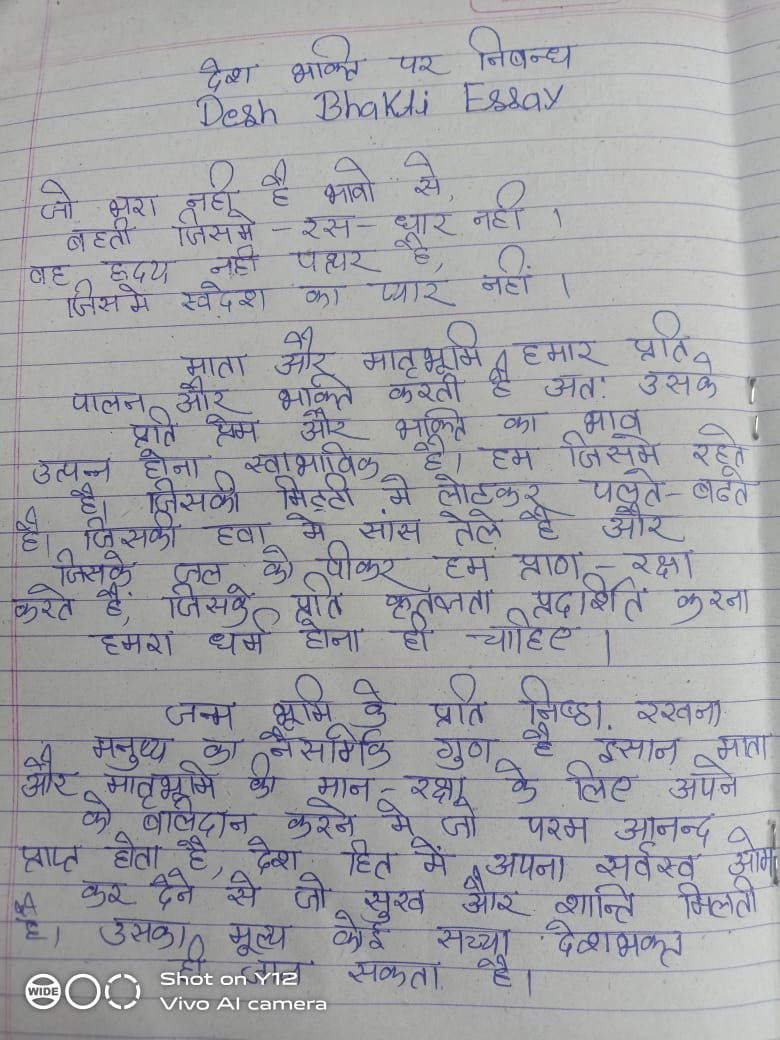 देश भक्ति पर निबन्ध
Desh Bhakti Essay
जो भरा नहीं है भावो से,
बहती जिसमे - रस - धार नही ।
वह हृदय नही पत्थर है,
जिसमे स्वदेश का प्यार नहीं ।
माता और मातृभूमि हमार प्रति
पालन और भक्ति करती है अत: उसके
प्रति प्रेम और भक्ति का भाव
उत्पन्न होना स्वाभाविक है। हम जिसमे रहते
है। जिसकी मिट्टी मे लोटकर पलते - बढते
है। जिसकी हवा मे सांस तेले है और
जिसके जल को पीकर हम प्राण - रक्षा
करते हैं, जिसके प्रति कृतज्ञता प्रदर्शित करना
हमरा धर्म होना ही चाहिए ।
जन्म भूमि के प्रति निष्ठा रखना
मनुष्य का नैसर्मिक गुण है इसान माता
और मातृभूमि की मान - रक्षा के लिए अपने
को बलिदान करने मे जो परम आनन्द
प्राप्त होता है, देश हित में अपना सर्वस्व ओम
कर देने से जो सुख और शान्ति मिलती
है। उसका मूल्य कोई सच्चा देशभक्त
ही जान सकता है।
WIDE
Shot on Y12
Vivo AI camera